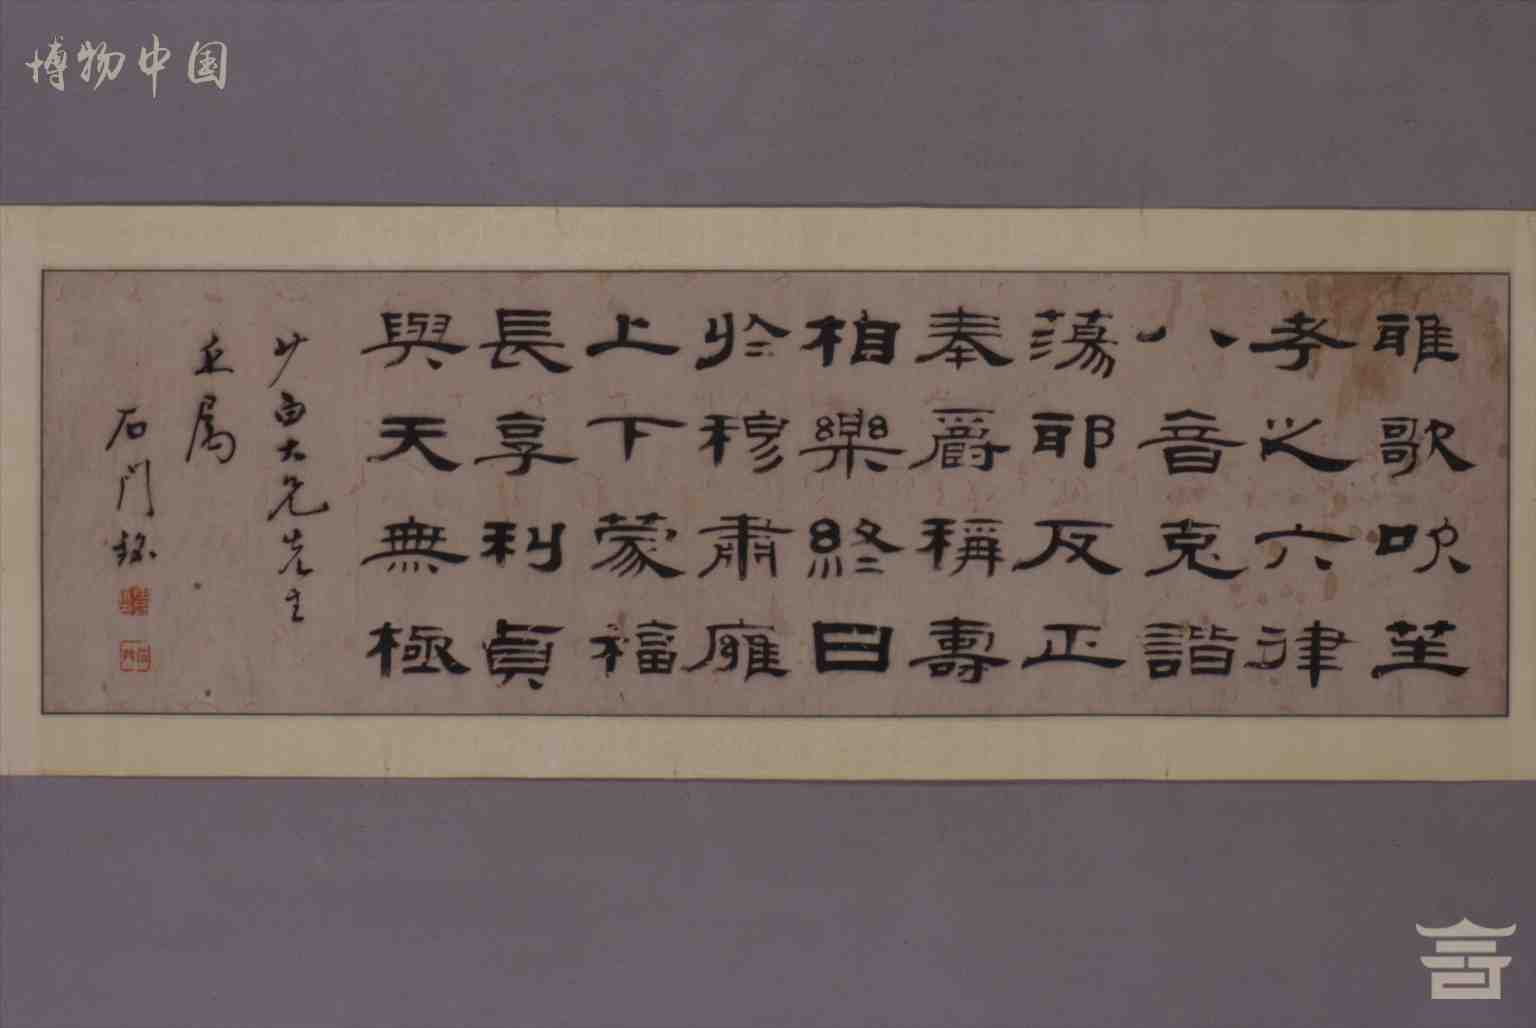 博物中国
雅歌吹笙
考之六律
八音克諧
蕩耶反正
奉爵稱壽
相樂終日
於穆肅廱
上下蒙福
長享利貞
與天無極
少白大兄先生
正屬
石門